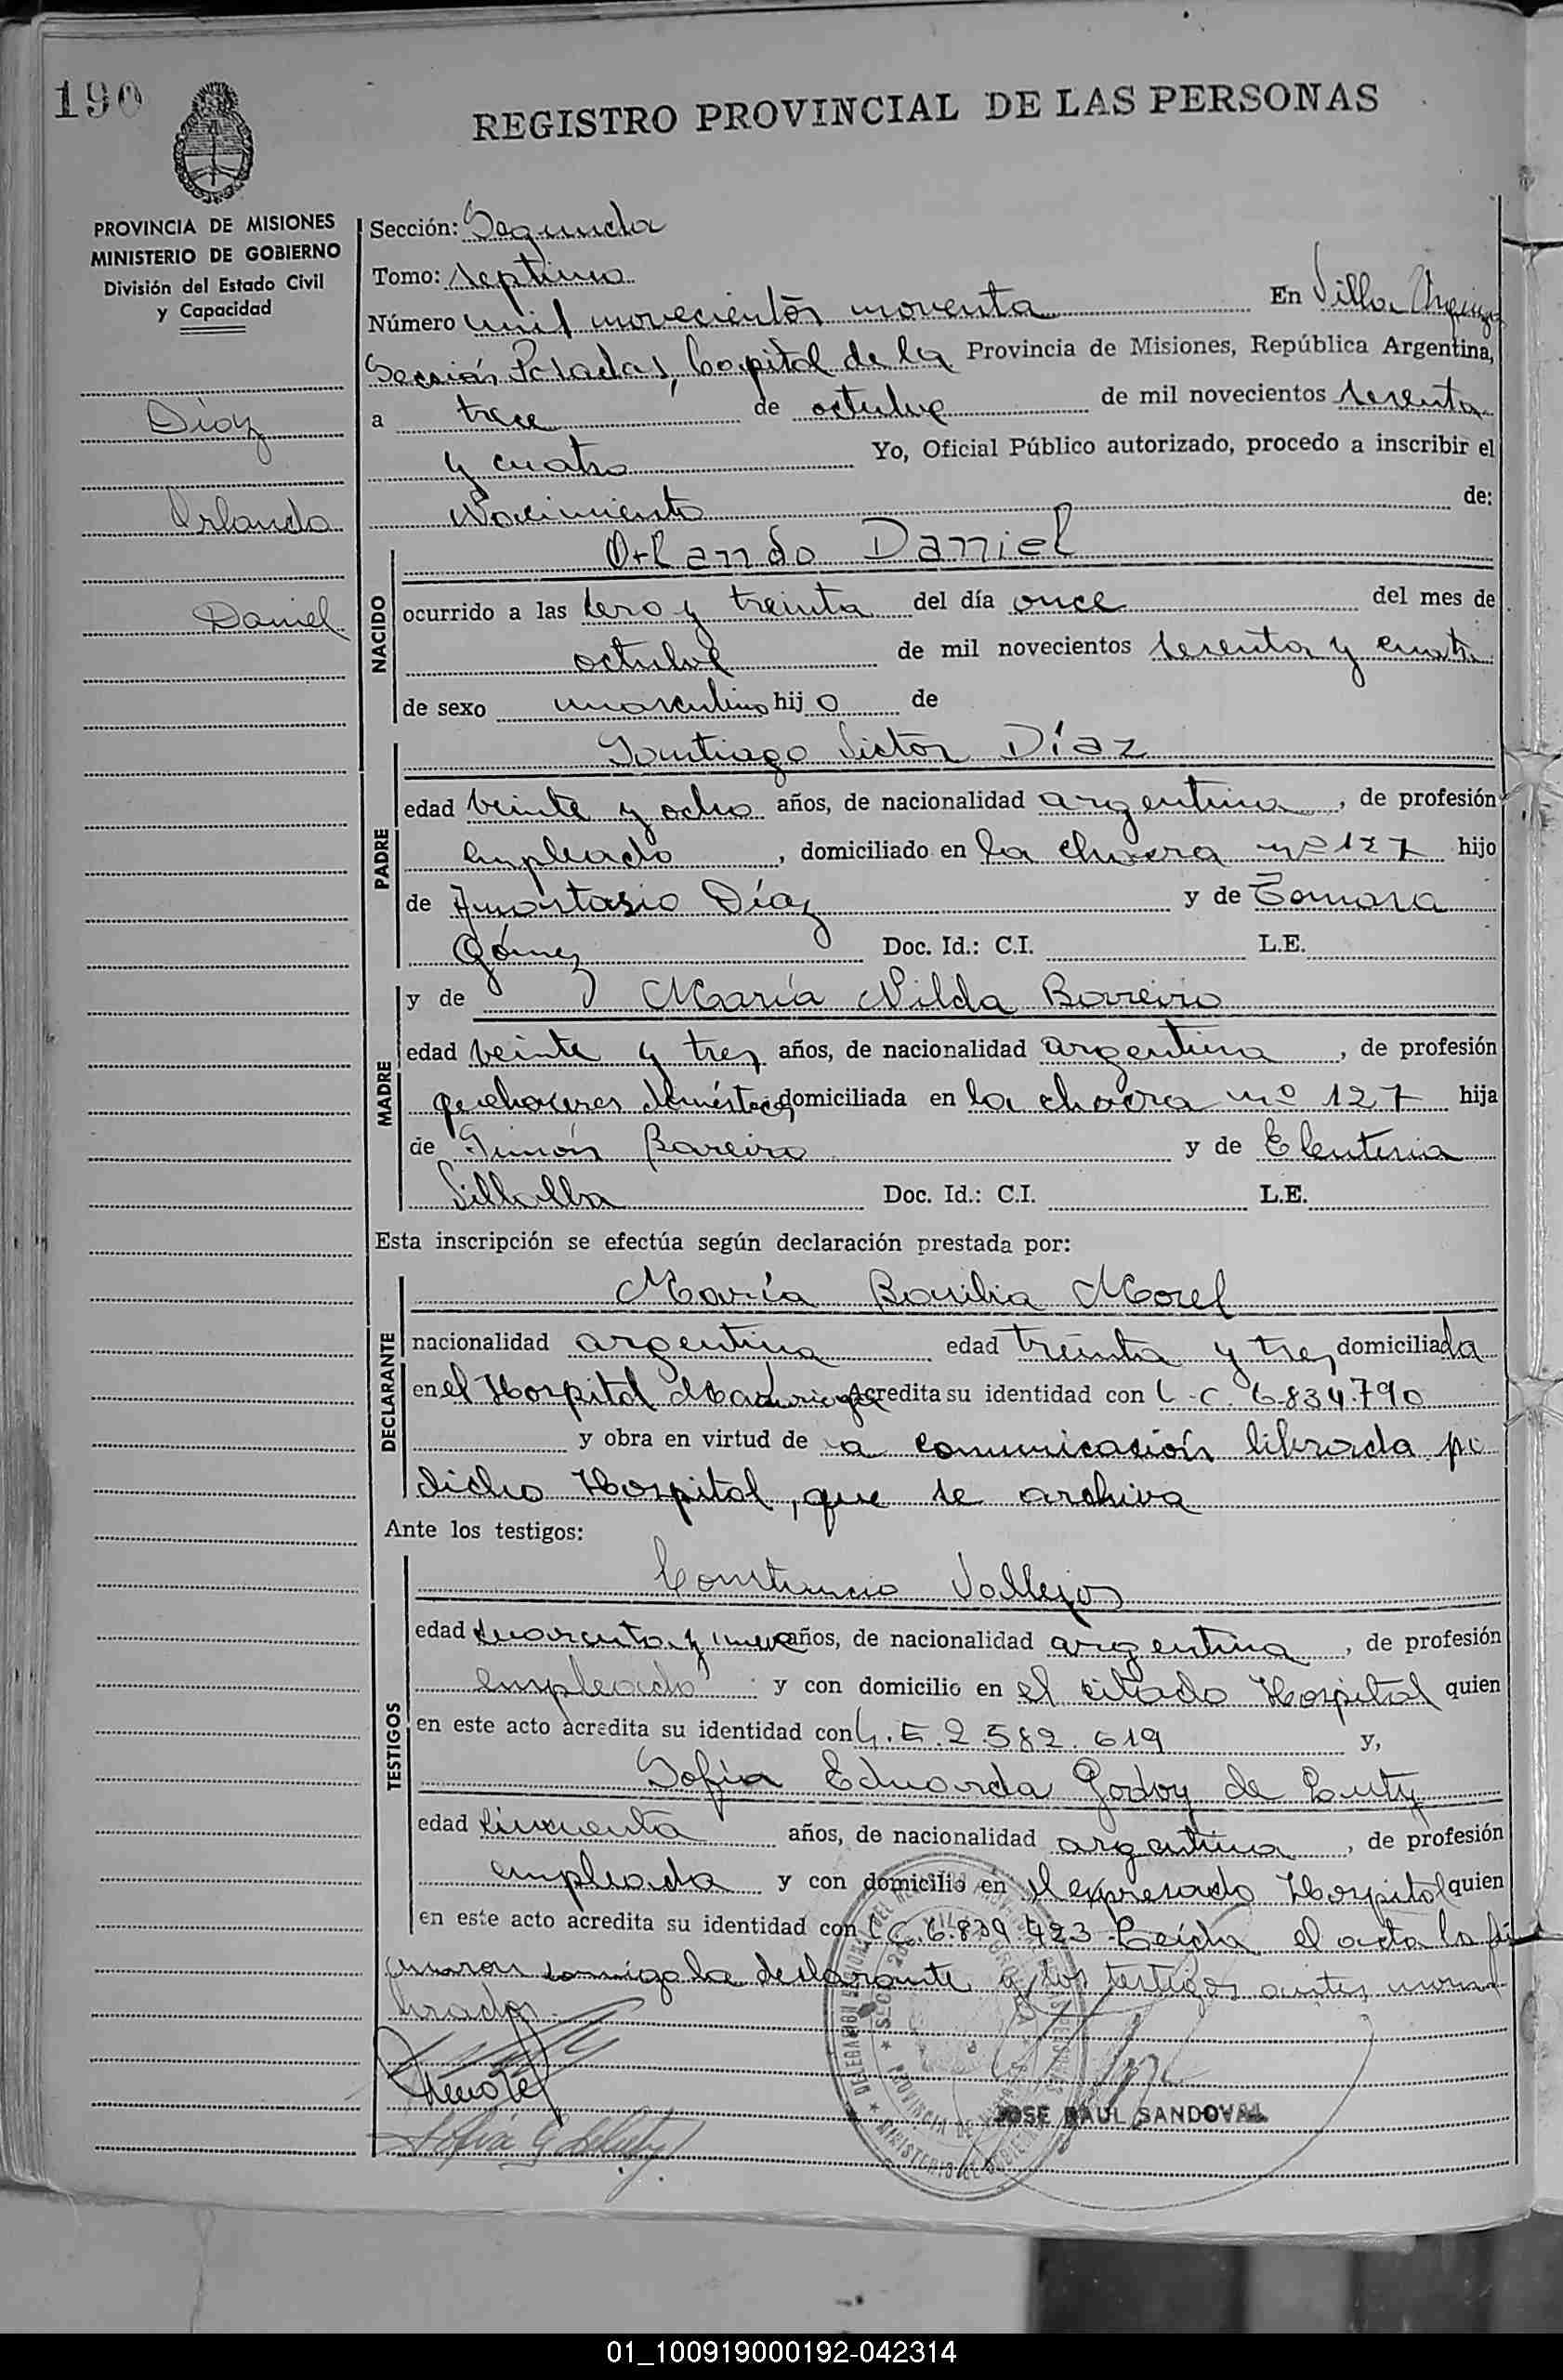 190
REGISTRO PROVINCIAL DE LAS PERSONAS
PROVINCIA DE MISIONES
MINISTERIO DE GOBIERNO
División del Estado Civil
y Capacidad
Díaz
Orlando
Daniel
Sección: Segunda
Tomo: septimo
Número mil novecientos noventa En Villa Urquiza
Sección Posadas, Capital de la Provincia de Misiones, República Argentina,
a trece de octubre de mil novecientos sesenta
y cuatro Yo, Oficial Público autorizado, procedo a inscribir el
Nacimiento de:
NACIDO
Orlando Daniel
ocurrido a las cero y treinta del día once del mes de
octubre de mil novecientos sesenta y cuatro
de sexo masculino hijo de
PADRE
Santiago Victor Díaz
edad veinte y ocho años, de nacionalidad argentina, de profesión
empleado, domiciliado en la chacra nº 127 hijo
de Anastasio Díaz y de Tomasa
Gómez Doc. Id.: C.I. L.E.
MADRE
y de María Nilda Bareiro
edad veinte y tres años, de nacionalidad argentina, de profesión
quehaceres domésticos domiciliada en la chacra nº 127 hija
de Simón Bareiro y de Eleuteria
Villalba Doc. Id.: C.I. L.E.
Esta inscripción se efectúa según declaración prestada por:
DECLARANTE
María Basilia Morel
nacionalidad argentina edad treinta y tres domiciliada
en el Hospital Madariaga Acredita su identidad con L.C. 6.834.790
y obra en virtud de la comunicación librada por
dicho Hospital, que se archiva
Ante los testigos:
TESTIGOS
Constancio Vallejos
edad cuarenta y nueve años, de nacionalidad argentina, de profesión
empleado y con domicilio en el citado Hospital quien
en este acto acredita su identidad con L.E. 2.582.619 y,
Sofia Eduarda Godoy de
edad cincuenta años, de nacionalidad argentina, de profesión
empleada y con domicilio en el expresado Hospital quien
en este acto acredita su identidad con L.C. 6.839.423 - Leída el acta la fir
maron conmigo la declarante y los testigos antes nom
brados.
JOSE RAUL SANDOVAL
01_100919000192-042314